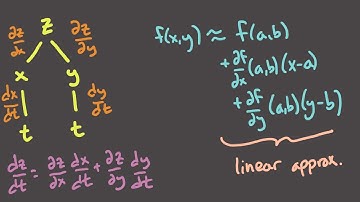 z
∂z/∂x ∂z/∂y
x y
dx/dt dy/dt
t t
dz/dt = ∂z/∂x dx/dt + ∂z/∂y dy/dt
f(x,y) ≈ f(a,b)
+ ∂f/∂x (a,b)(x-a)
+ ∂f/∂y (a,b)(y-b)
linear approx.